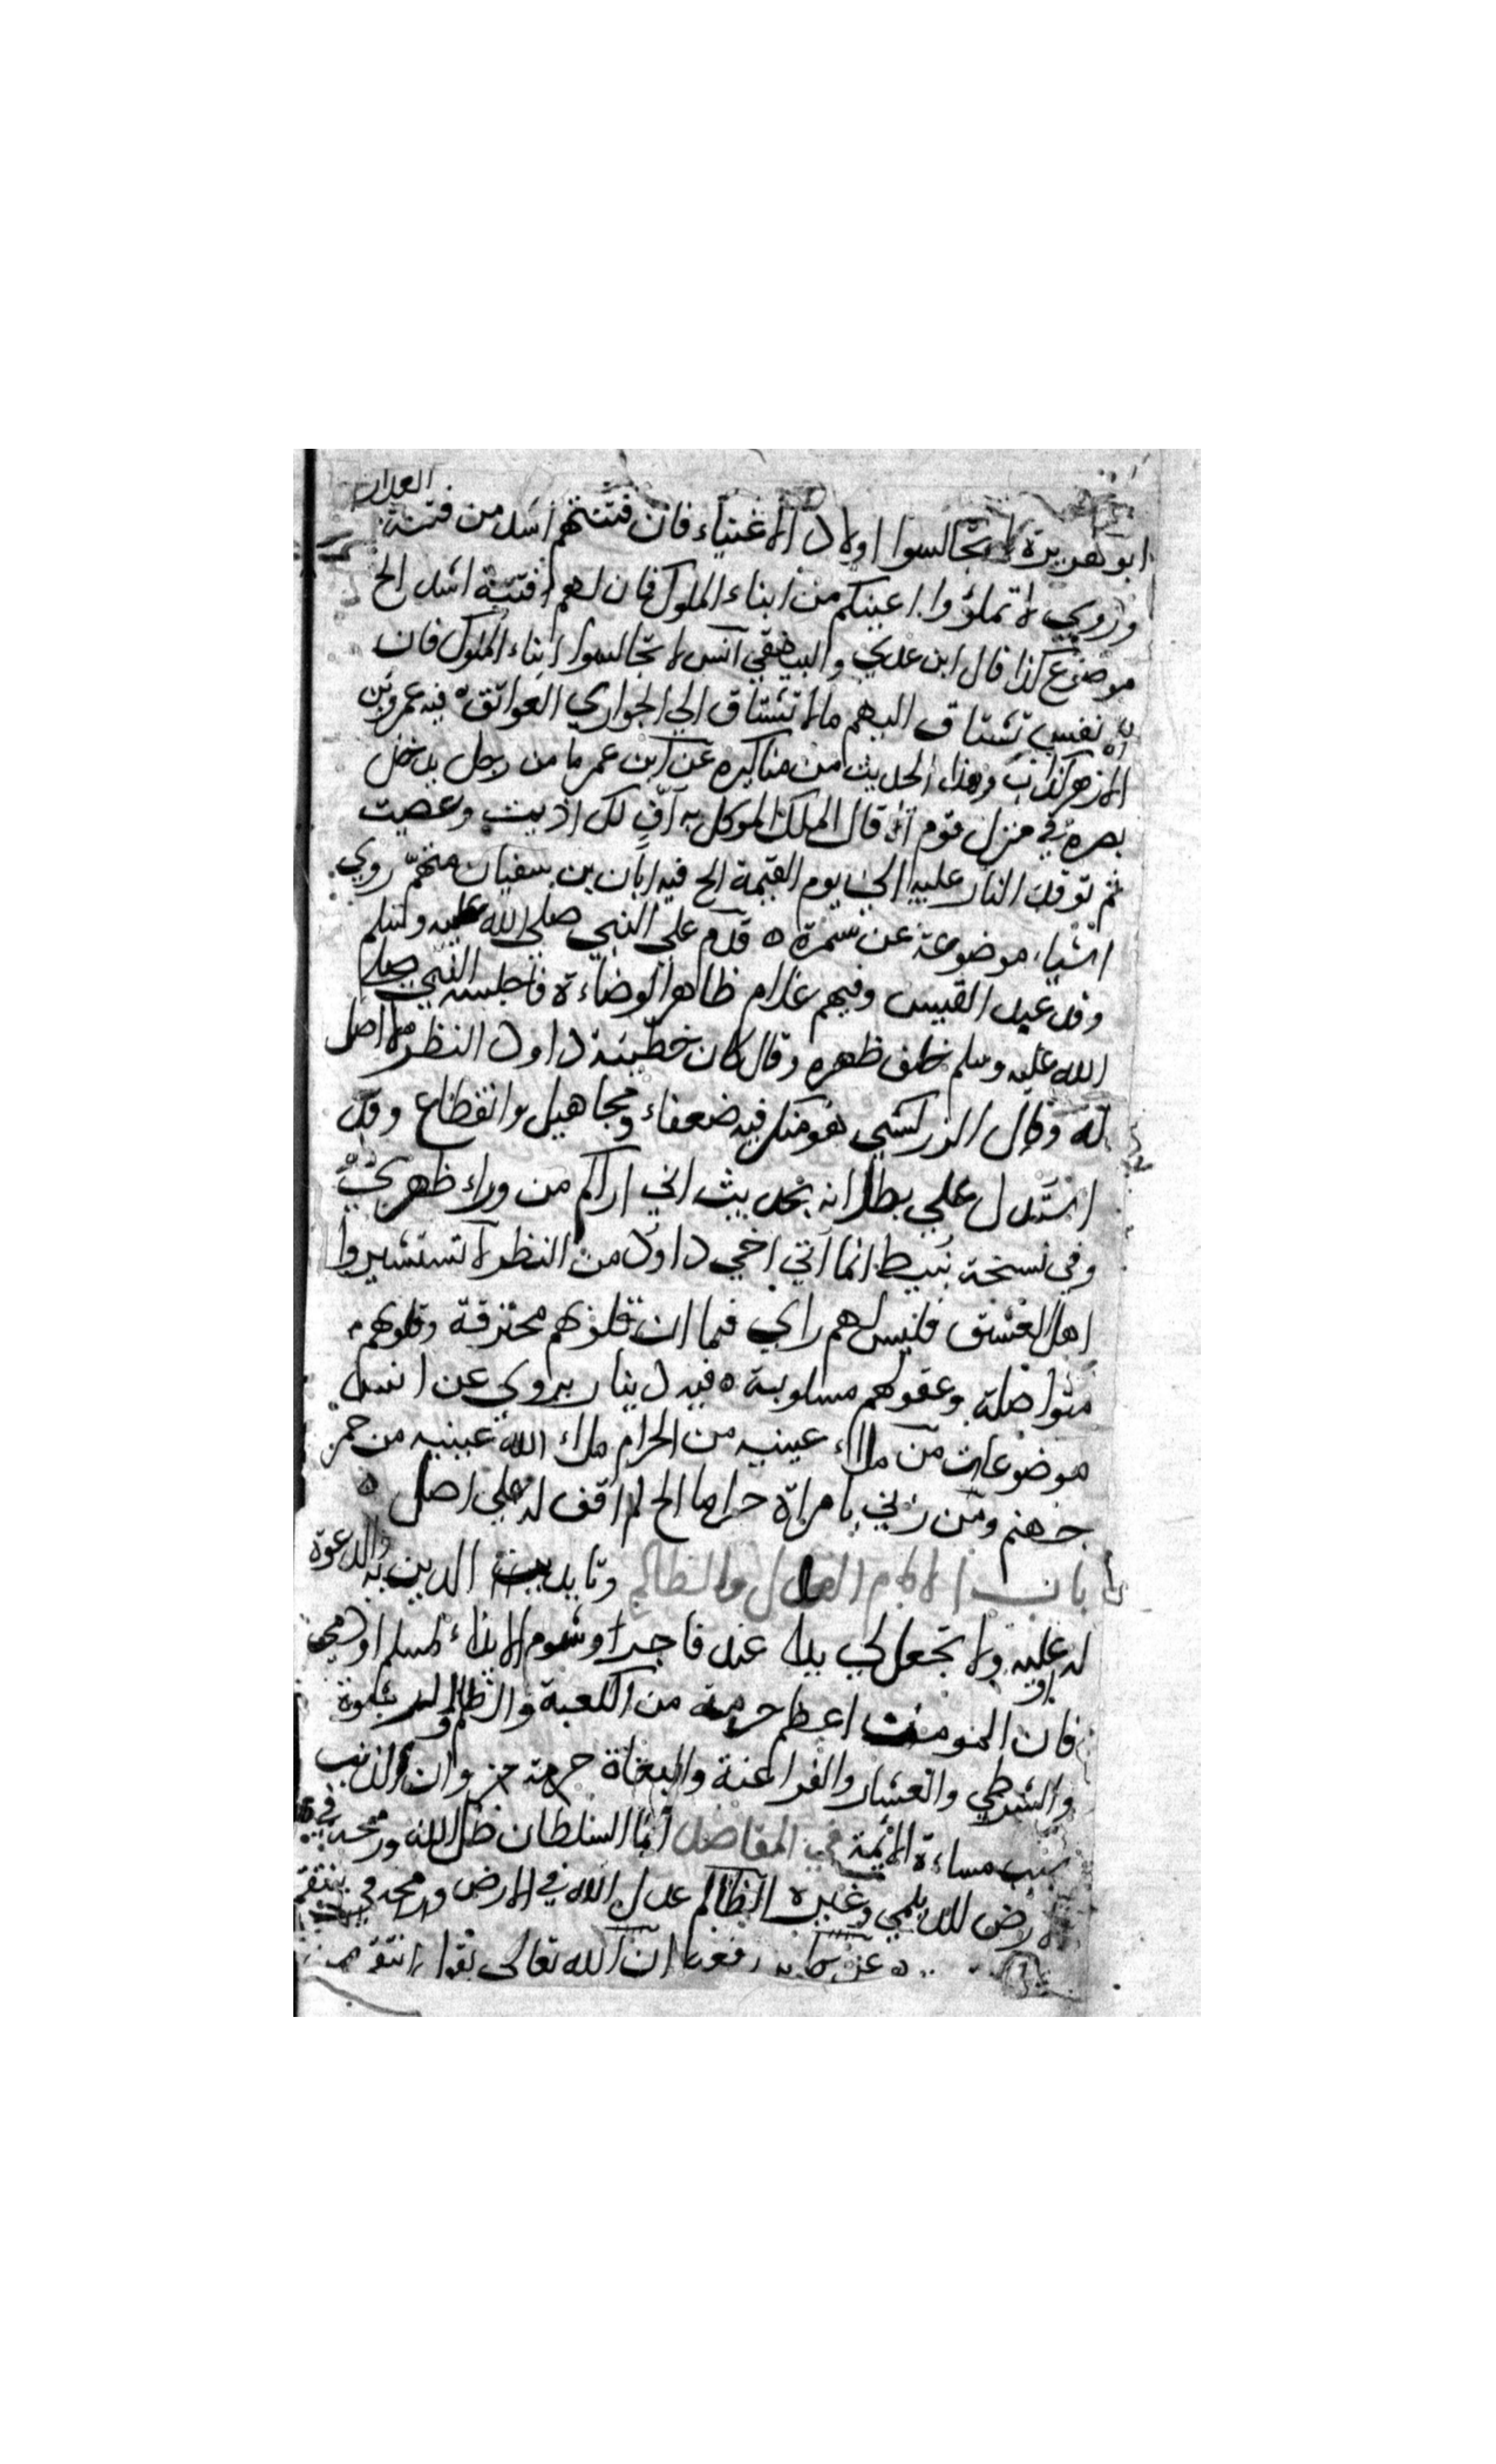 العذارى
ابو هريرة لا تجالسوا اولاد الاغنياء فان فتنتهم اشد من فتنة
وروي لا تملؤوا اعينكم من ابناء الملوك فان لهم فتنة اشد الخ
موضوع كذا قال ابن عدي والبيهقي انس لا تجالسوا ابناء الملوك فان
الا نفس تشتاق اليهم ما لا تشتاق الي الجواري العواتق ه فيه عمرو بن
الازهر كذاب وهذا الحديث من مناكيره عن ابن عمر ما من رجل يدخل
بصره في منزل قوم الا قال الملك الموكل به اف لك اذيت وعصيت
ثم توقد النار عليه الي يوم القيمة الخ فيه ابان بن سفيان متهم روي
اشياء موضوعة عن سمرة ه قدم علي النبي صلي الله عليه وسلم
وفد عبد القيس وفيهم غلام ظاهر الوضاءة فاجلسه النبي صلي
الله عليه وسلم خلف ظهره وقال كان خطيئة داود النظر لا اصل
له وقال الزركشي هو منكر فيه ضعفاء ومجاهيل وانقطاع وقد
استدل علي بطلانه بحديث اني اراكم من وراء ظهري
وفي نسخة نبيط انما اتي اخي داود من النظر لا تستشيروا
اهل العشق فليس لهم راي فما ان قلوبهم محترقة وقلوبهم
متواضلة وعقولهم مسلوبة ه فيه دينار يروي عن انس
موضوعات من ملاء عينيه من الحرام ملاء الله عينيه من جمر
جهنم ومن زني بامراة حراما الخ لم اقف له علي اصل ه
باب الامام العادل والظالم وتاييد الدين به والدعوة
له او عليه ولا تجعل لي يدا عند فاجر وشوم الايذاء لمسلم او ذمي
فان المومن اعظم حرمة من الكعبة والظالم
والشرطي والعشار والفراعنة والبغاة حرمة وان الذنب
سبب مساءة الائمة في المقاصد انما السلطان ظل الله ورمحه في
الارض للديلمي وغيره الظالم عدل الله في الارض ورمحه في ينتقم
ه عن جابر رفعه ان الله تعالى يقول انتقم